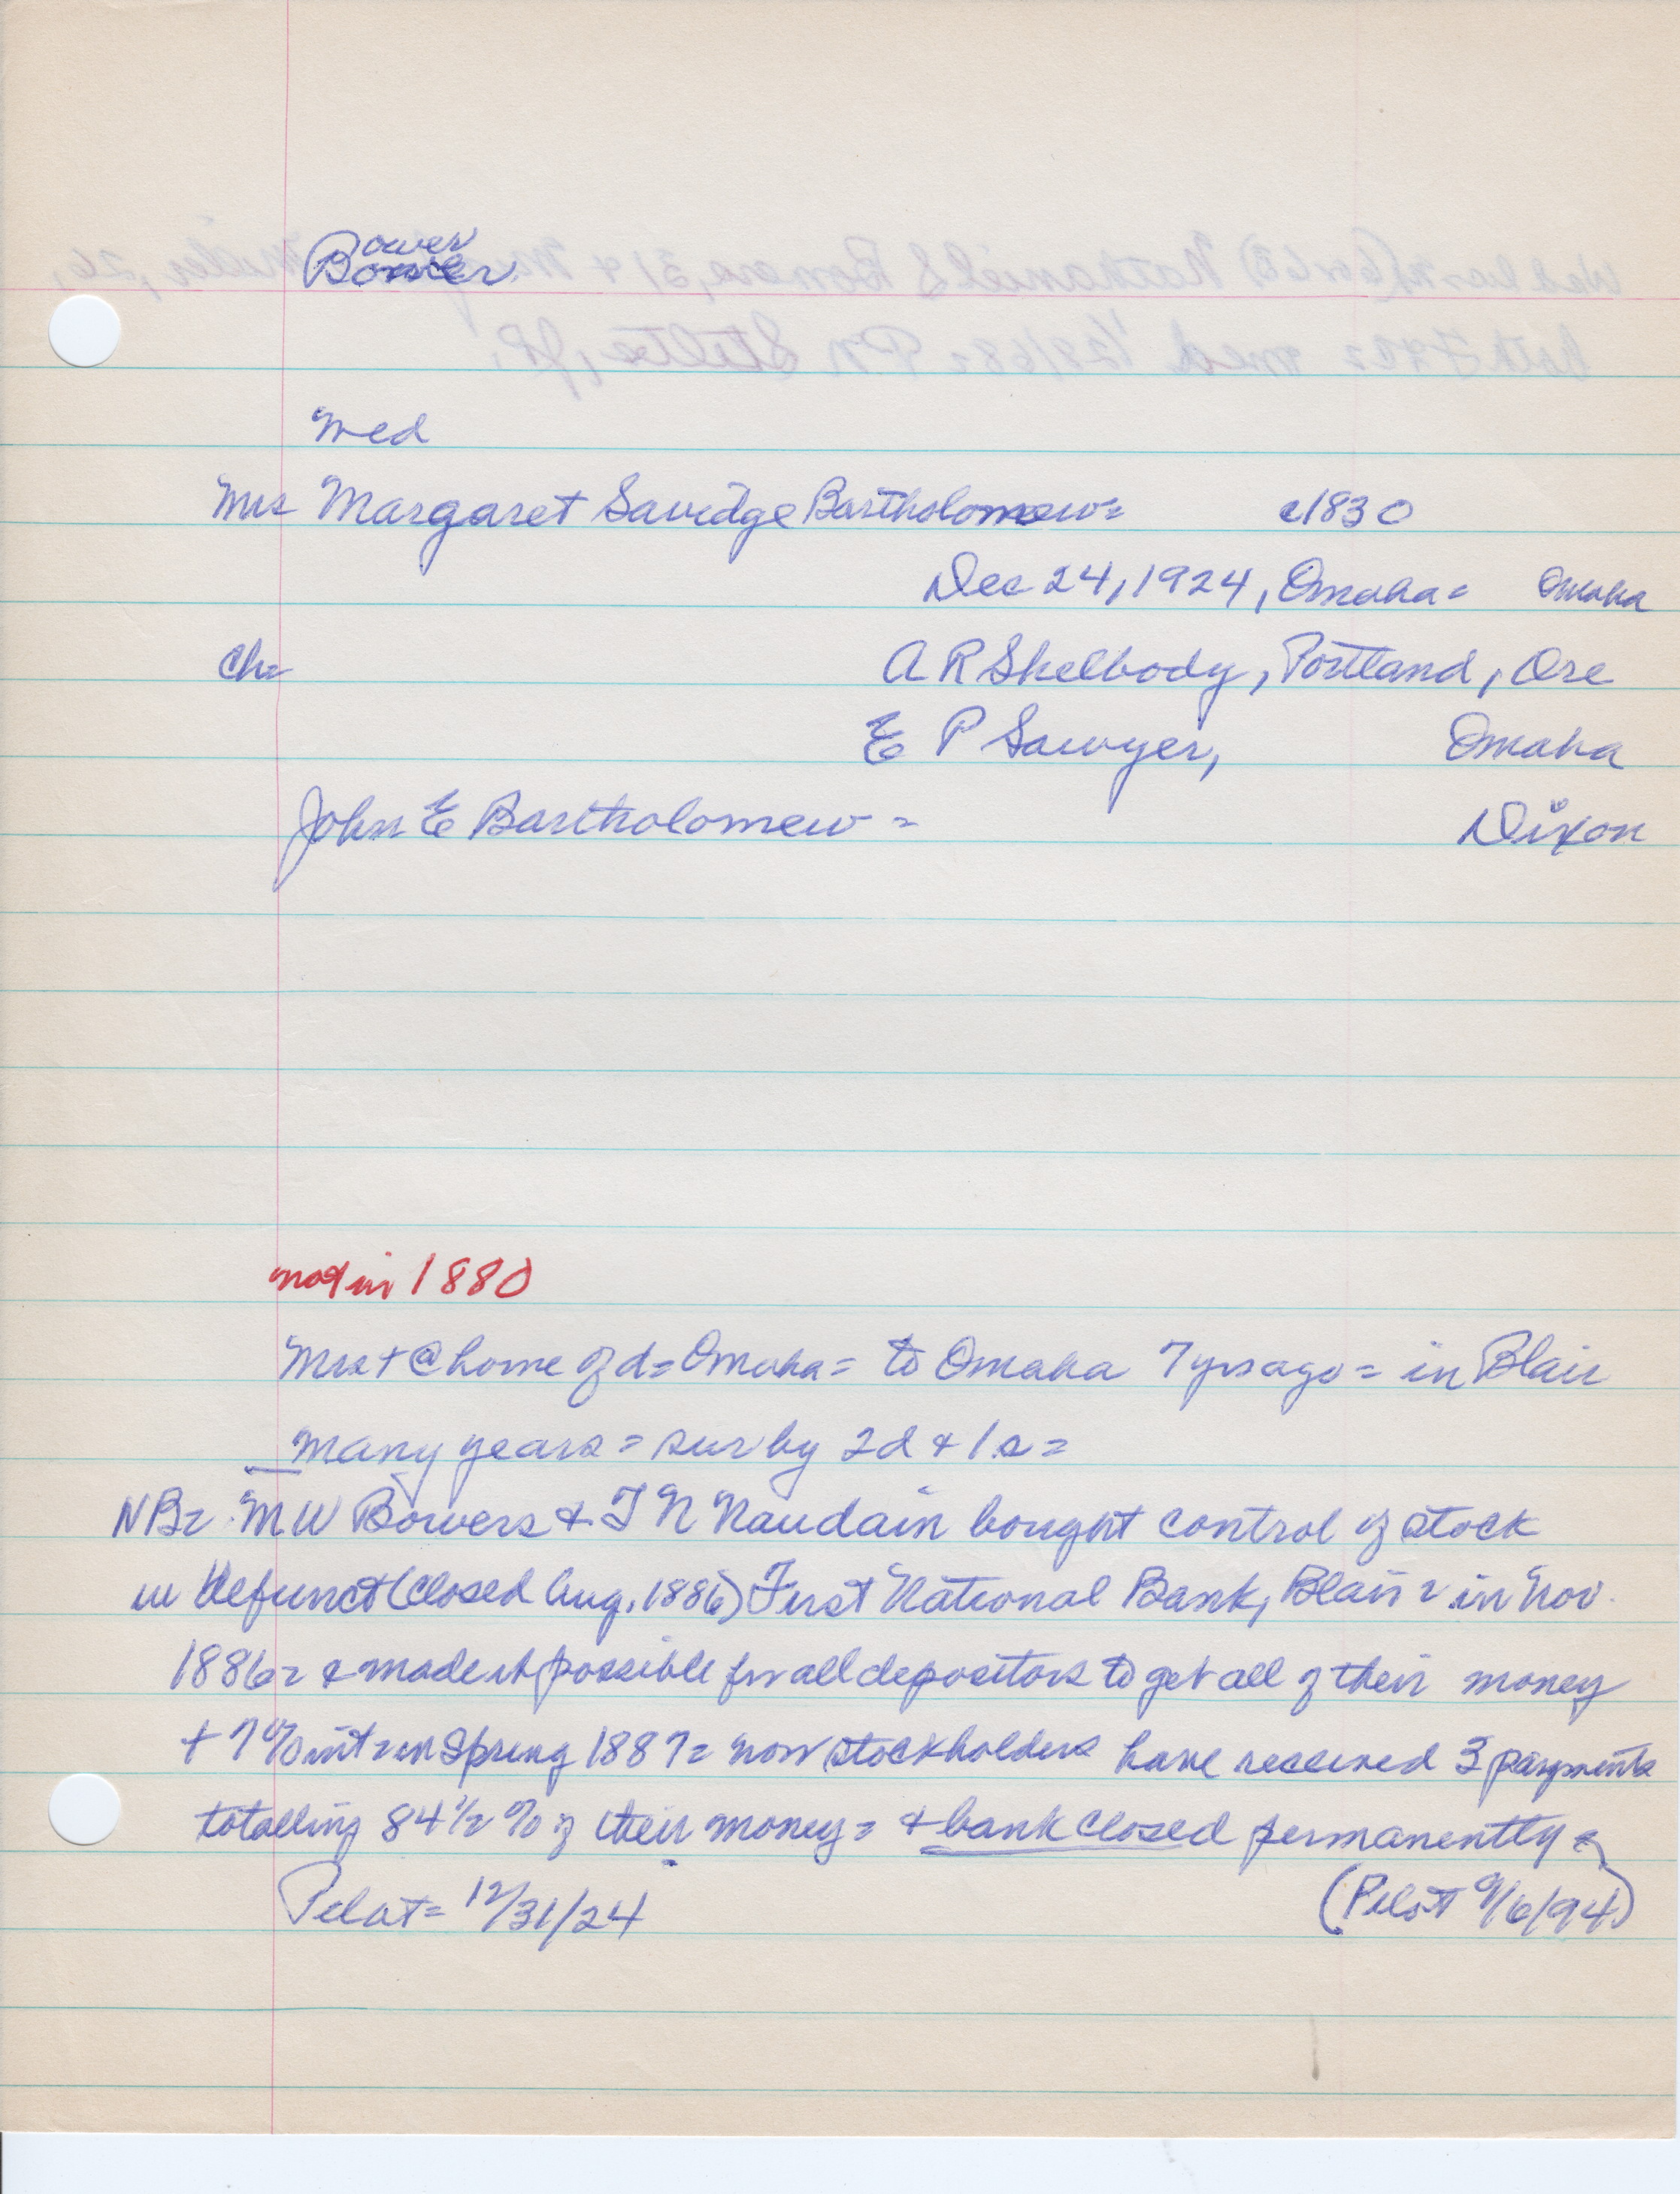 Bower
Bower
med
Mrs Margaret Savidge Bartholomew= c1830
Dec 24, 1924, Omaha= Omaha
ch= A R Skelbody, Portland, Ore
E P Sawyer, Omaha
John E Bartholomew = Dixon
not in 1880
Mrs + @ home of d= Omaha= to Omaha 7 yrs ago = in Blair
many years = sur by 2d + 1s =
NB= M W Bowers & T N Naudain bought control of stock
in defunct (closed Aug. 1886) First National Bank, Blair = in Nov.
1886= & made it possible for all depositors to get all of their money
+ 7% int= in Spring 1887= now stockholders have received 3 payments
totalling 84 1/2 % of their money = & bank closed permanently =
Pilot= 12/31/24 (Pilot 9/6/94)